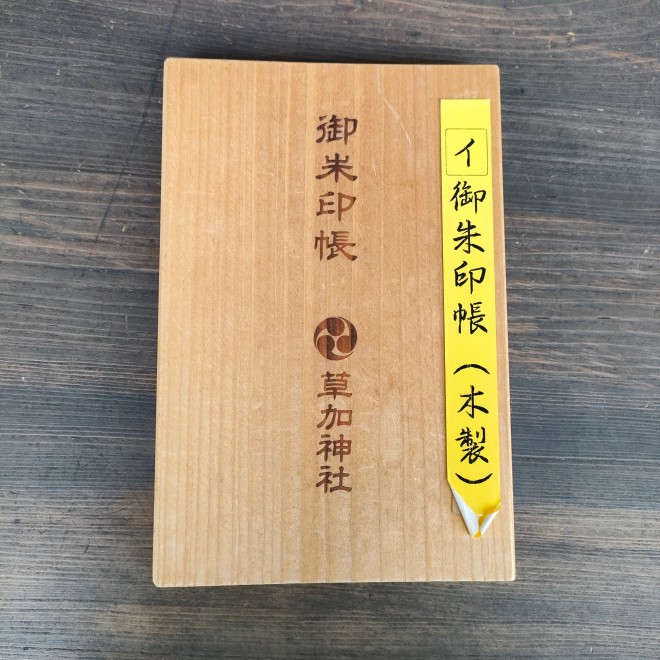 イ御朱印帳(木製)
御朱印帳
草加神社